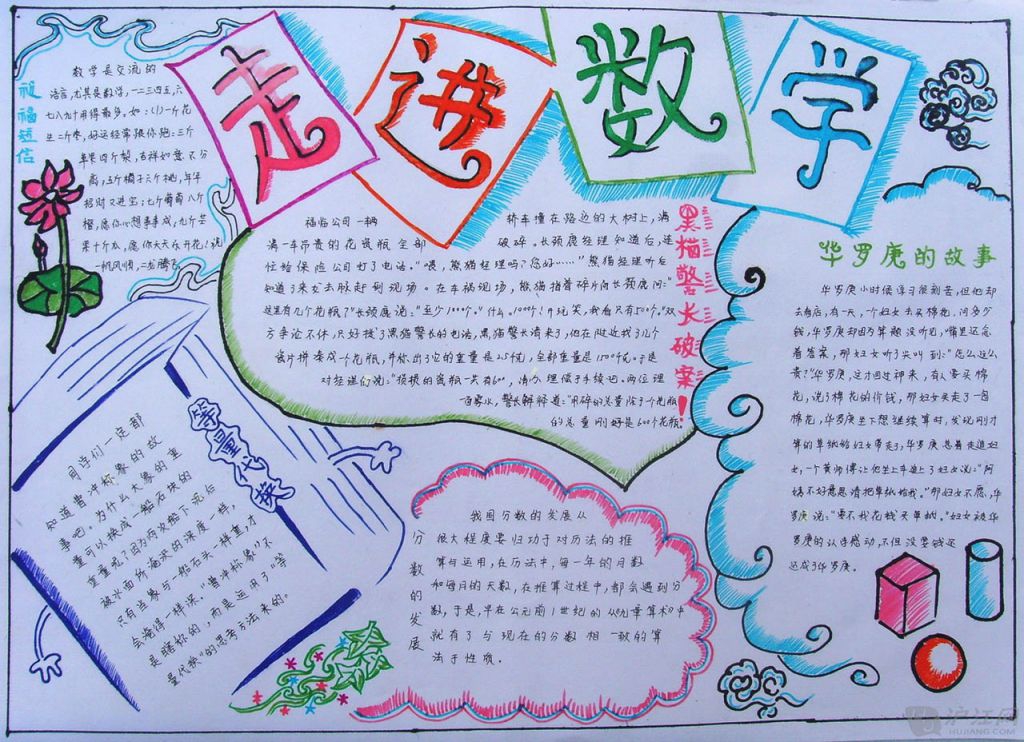 走进数学
祝福短信
数学是交流的
语言,尤其是数字,一二三四五六
七八九十用得最多。如:(1)一斤花
生二斤枣,好运经常跟你跑;三斤
苹果四斤梨,吉祥如意不分
离;五斤橘子六斤桃,年年
招财又进宝;七斤葡萄八斤
橙,愿你心想事事成;九斤芒
果十斤瓜,愿你天天乐开花!祝
一帆风顺,二龙腾飞
黑猫警长破案!
福临公司一辆
满一车昂贵的花瓷瓶全部
忙给保险公司打了电话。“喂,熊猫经理吗?您好……”熊猫经理听后
知道了来龙去脉赶到现场。在车祸现场,熊猫指着碎片向长颈鹿问:“
这里有几个花瓶?”长颈鹿说:“至少1000个。”“什么,1000个!开玩笑,我看只有500个。”双
方争论不休,只好找了黑猫警长的电话,黑猫警长请来了,他在附近找了几个
瓷片拼凑成一个花瓶,并称出了它的重量是2.5千克,全部重量是1500千克。于是
对经理们说:“损损的瓷瓶一共有600,请办理赔手续吧。两位理
的总重刚好是600个花瓶。
轿车撞在路边的大树上,满
破碎。长颈鹿经理知道后,连
华罗庚的故事
华罗庚小时候学习很刻苦,但他却
去看店,有一天,一个妇女去买棉花,问多少
钱,华罗庚却因为算题没听见,嘴里还念
着答案,那妇女听了尖叫到:“怎么这么
贵?”华罗庚,这才回过神来,有人要买棉
花,说了棉花的价钱,那妇女买走了一包
棉花,华罗庚坐下想继续算时,发现刚才
算的草纸给妇女带走了,华罗庚急着去追妇
女,一个黄师傅让他坐上车追上了妇女说:“阿
姨不好意思请把草纸给我。”那妇女不愿,华
罗庚说:“要不我花钱买草纸。”妇女被华
罗庚的认真感动,不但没要钱还
还成了华罗庚。
等量代换
同学们一定都
知道曹冲称象的故
事吧。为什么大象的重
量可以换成一船石块的
重量呢?因为两次船下沉后
被水面所淹没的深度一样,
只有当象与一船石头一样重,才
会淹得一样深。“曹冲称象”不
是瞎称的,而是运用了“等
量代换”的思考方法来的。
分数的发展
我国分数的发展从
很大程度要归功于对历法的推
算与运用,在历法中,每一年的月数
和每月的天数,在推算过程中,都会遇到分
数,于是,早在公元前1世纪的《九章算术》中
就有了与现在的分数相一致的算
法于性质。
沪江网
HUJIANG.COM